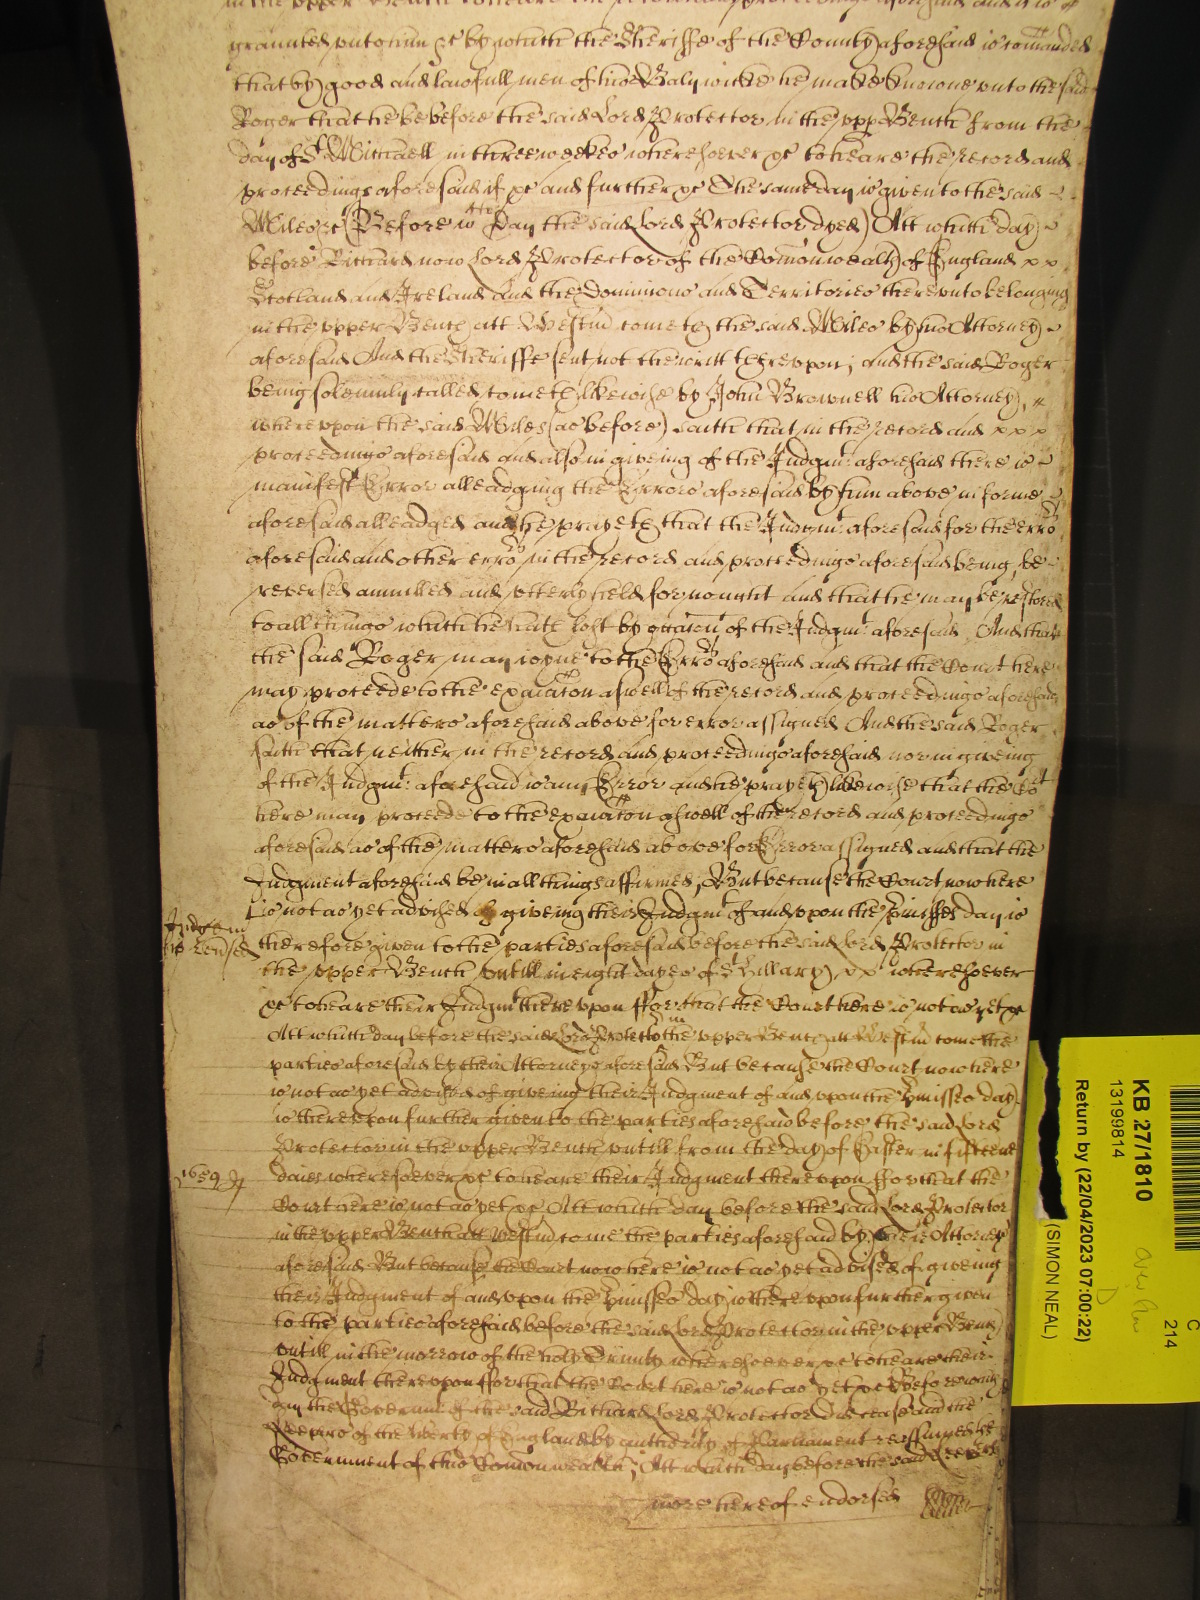 in the upper Bench
graunted unto him &c by which the Sheriffe of the County aforesaid is comanded
that by good and lawfull men of his Balywicke he make knowne unto the said
Roger that he be before the said Lord Protector in the upp Bench from the
day of St Michaell in three weekes wheresoever &c to heare the record and
proceedings aforesaid if &c and further &c The same day is given to the said
Miles &c (Before wch Day the said Lord Protector dyed) Att which day
before Richard now Lord Protector of the Comonwealth of England x x
Scotland and Ireland and the Dominions and Territories thereunto belonging
in the upper Bench att Westm cometh the said Miles by his Attorney
aforesaid And the Sheriffe sent not the writt thereupon; and the said Roger
being solemnly called cometh likewise by John Brownell his Attorney,
whereupon the said Miles (as before) saith that in the record and x x x
proceedings aforesaid and also in giveing of the Judgmt: aforesaid there is
manifest Error alleadging the Errors aforesaid by him above in forme
aforesaid alleadged and he prayeth that the Judgmt: aforesaid for the erro
aforesaid and other erro in the record and proceedings aforesaid being, be
reversed annulled and utterly held for nought and that he may be restored
to all things which he hath lost by occaion of the Judgmt: aforesaid, And that
the said Roger may ioyne to the Erro aforesaid and that the Court here
may proceede to the exaiacon aswell of the record and proceedings aforesaid
as of the matters aforesaid above for error assigned And the said Roger
saith that neither in the record and proceedings aforesaid nor in giveing
of the Judgmt: aforesaid is any Error and he prayeth likewise that the Cot
here may proceede to the exaiacon aswell of the record and proceedings
aforesaid as of the matters aforesaid above for Error assigned and that the
Judgment aforesaid be in all things affirmed, But because the Court now here
is not as yet advised of giveing their Judgmt of and upon the pmisses day is
therefore given to the parties aforesaid before the said Lord Protector in
the upper Bench untill in eight dayes of St Hillary, x x wheresoever
&c to heare their Judgmt thereupon ffor that the Court here is not as yet &c
Att which day before the said Lord Protector in the upper Bench att Westm come the
parties aforesaid by their Attorneys aforesaid But because the Court now here
is not as yet advised of giveing their Judgment of and upon the pmisses day
is thereupon further given to the parties aforesaid before the said Lord
Protector in the upper Bench untill from the day of Easter in fifteene
1659
daies wheresoever &c to heare their Judgment thereupon ffor that the
Court here is not as yet &c Att which day before the said Lord Protector
in the upper Bench att Westm come the parties aforesaid by their Attorneys
aforesaid But because the Court now here is not as yet advised of giveing
their Judgment of and upon the pmisses day is thereupon further given
to the parties aforesaid before the said Lord Protector in the upper Bench
untill in the morrow of the holy Trinity wheresoever &c to heare their
Judgment thereupon ffor that the Court here is not as yet &c Before which
day the Governmt of the said Richard Lord Protector did cease and the
Keepers of the liberty of England by authority of Parliament reassumed the
Government of this Comonwealth; Att which day before the said Keepers
more hereof endorsed
KB 27/1810
13199814
Return by (22/04/2023 07:00:22)
(SIMON NEAL)
C
214